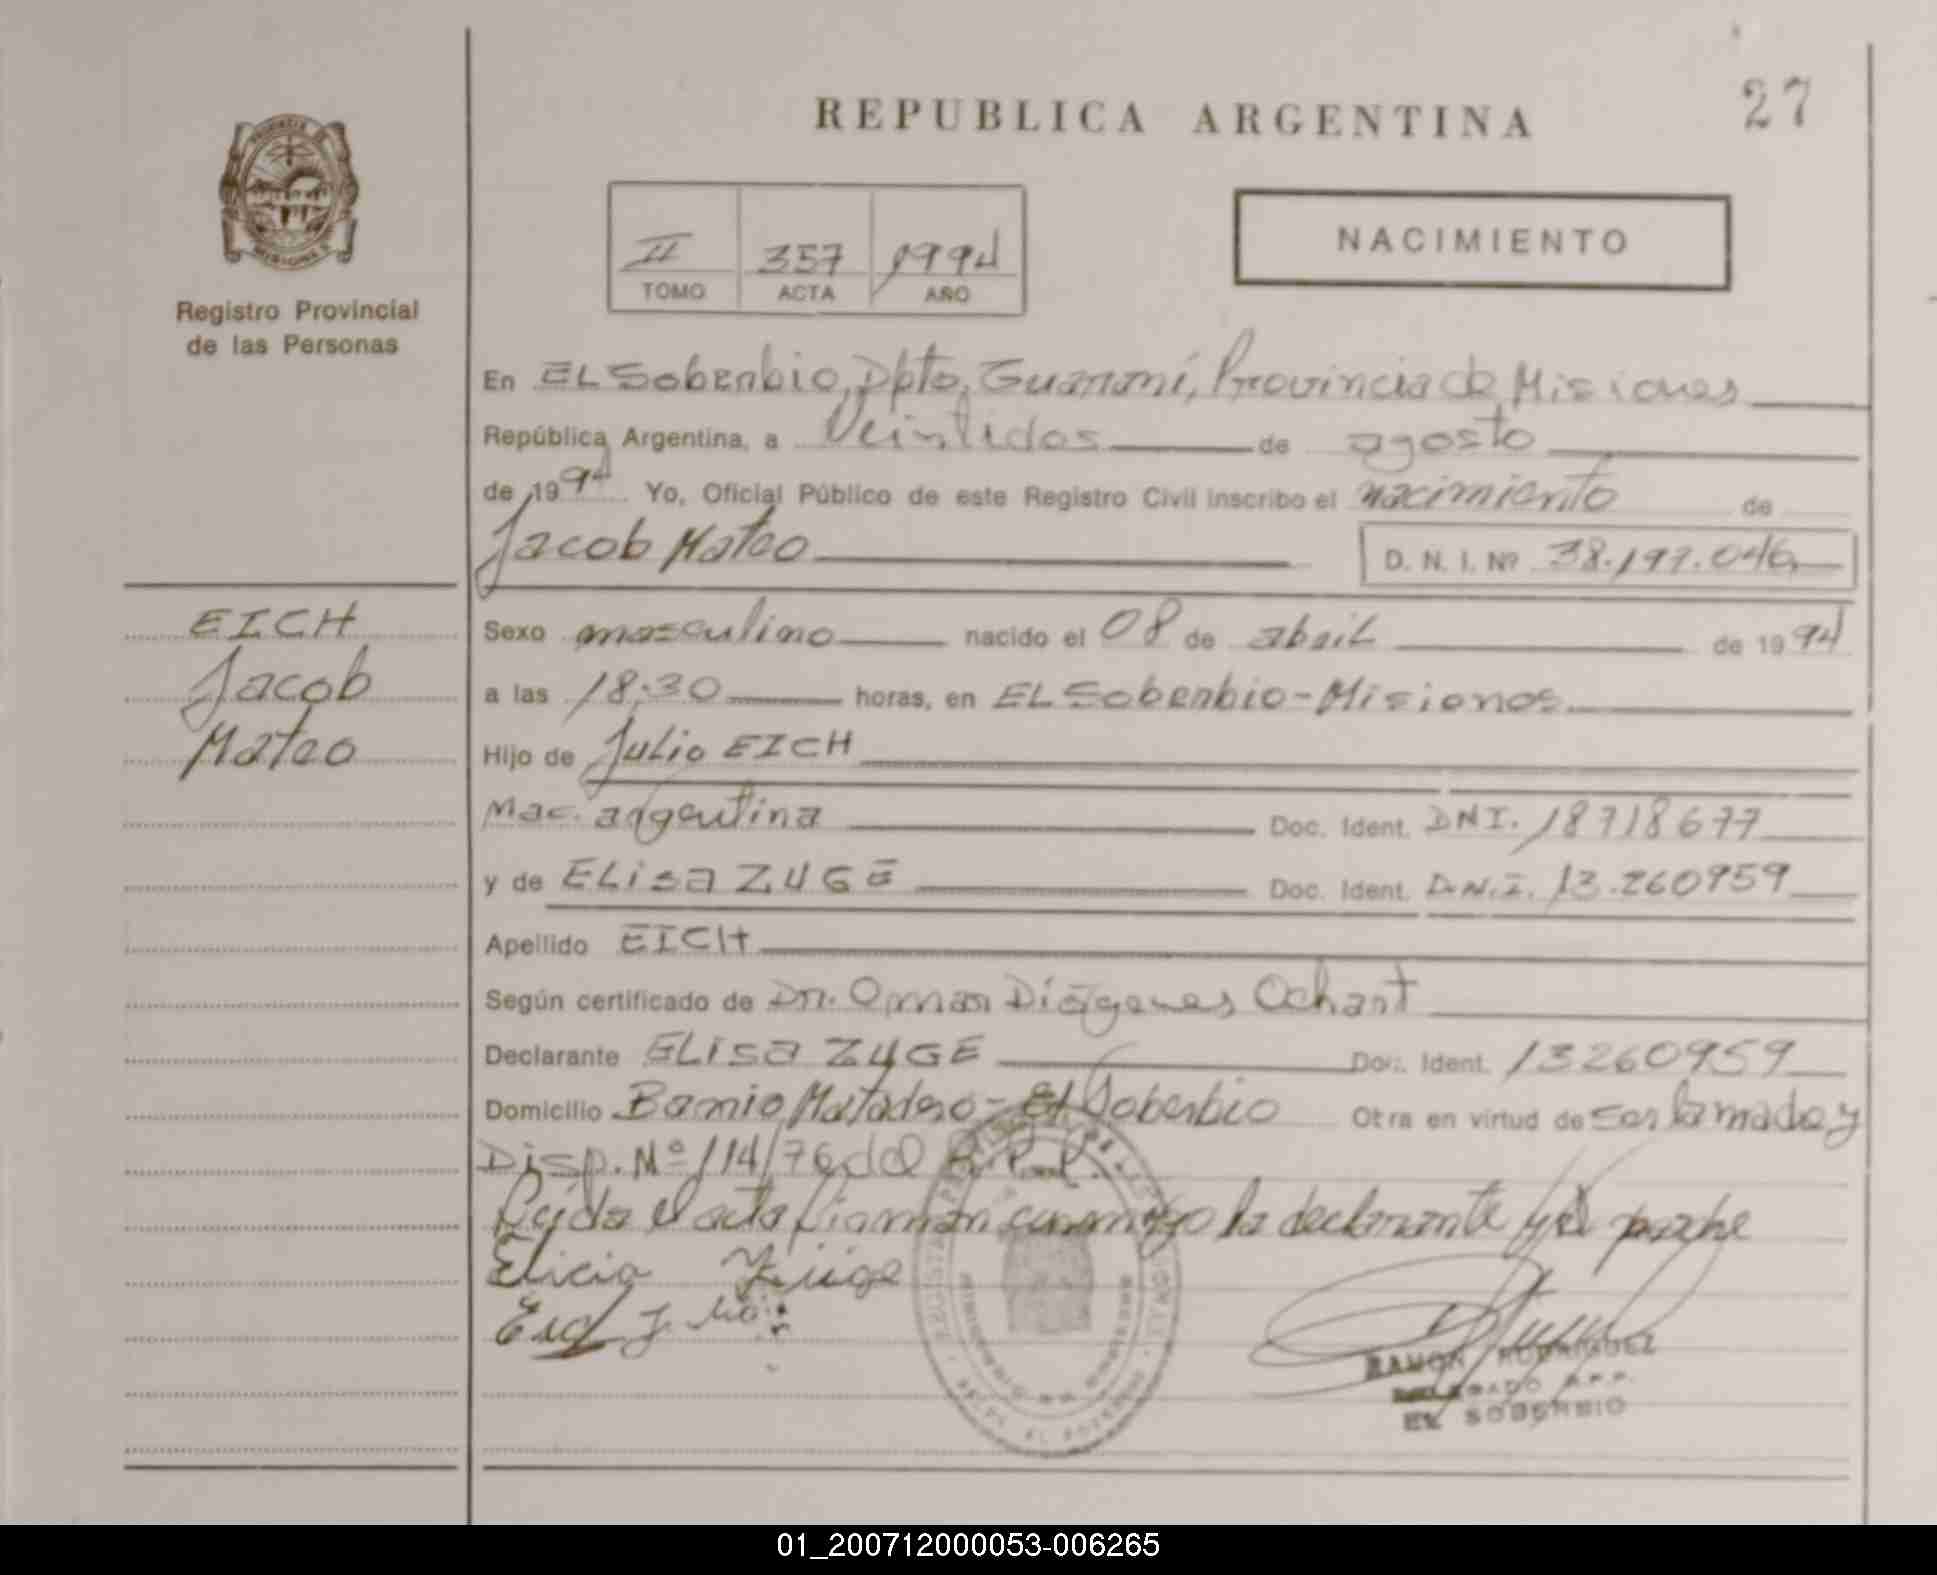 27
REPUBLICA ARGENTINA
II 357 1994
TOMO ACTA AÑO
NACIMIENTO
Registro Provincial
de las Personas
En EL Soberbio, Dpto. Guaraní, Provincia de Misiones
República Argentina, a Veintidos de agosto
de 1994 Yo, Oficial Público de este Registro Civil inscribo el nacimiento de
Jacob Mateo D. N. I. Nº 38.197.046
EICH
Jacob
Mateo
Sexo masculino nacido el 08 de abril de 1994
a las 18:30 horas, en EL Soberbio - Misiones
Hijo de Julio EICH
Nac. argentina Doc. Ident. DNI. 18718677
y de ELisa ZUGE Doc. Ident. D.N.I. 13.260959
Apellido EICH
Según certificado de Dr. Omar Diógenes Ochart
Declarante ELisa ZUGE Doc. Ident. 13260959
Domicilio Barrio Matadero - El Soberbio Otra en virtud de ser la madre y
Disp. Nº 114/76 del R.P.P.
Leída el acta firman conmigo la declarante y el padre
Elicia Züge
Eich Julio
RAMON RODRIGUEZ
DELEGADO R.P.P.
EL SOBERBIO
01_200712000053-006265